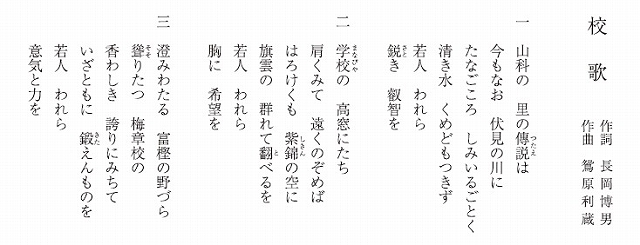 校歌
作詞 長岡博男
作曲 鴛原利蔵
一 山科の 里の傳説は
今もなお 伏見の川に
たなごころ しみいるごとく
清き水 くめどもつきず
若人 われら
鋭き 叡智を
二 学校の 高窓にたち
肩くみて 遠くのぞめば
はろけくも 紫錦の空に
旗雲の 群れて翻べるを
若人 われら
胸に 希望を
三 澄みわたる 富樫の野づら
聳りたつ 梅章校の
香わしき 誇りにみちて
いざともに 鍛えんものを
若人 われら
意気と力を